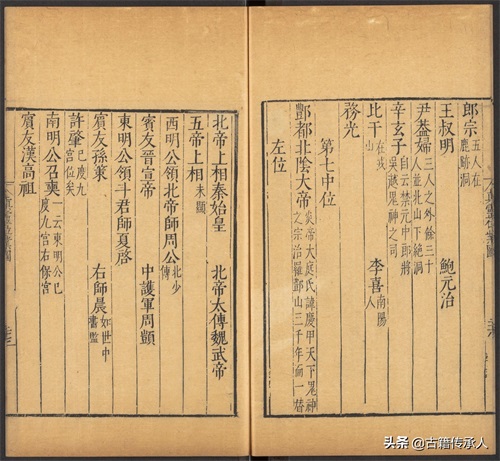 郎宗 五人在鹿跡洞
王叔明 鮑元治
尹蓋婦 三人之外餘三十人並北山下絕洞
辛玄子 自云禁元中郎將吳越鬼神之司
比干 在戎山 李喜 南陽人
務光
第七中位
酆都北陰大帝 炎帝大庭氏諱慶甲天下鬼神之宗治羅酆山三千年而一替
左位
北帝上相秦始皇 北帝太傅魏武帝
五帝上相 未顯
西明公領北帝師周公 北少傅
賓友晉宣帝 中護軍周顗
東明公領斗君師夏啓
賓友孫策 右師晨 如世中書監
許肇 已度九宮位矣
南明公召奭 一云東明公已度九宮右保宮
賓友漢高祖
头条 @古籍传承人